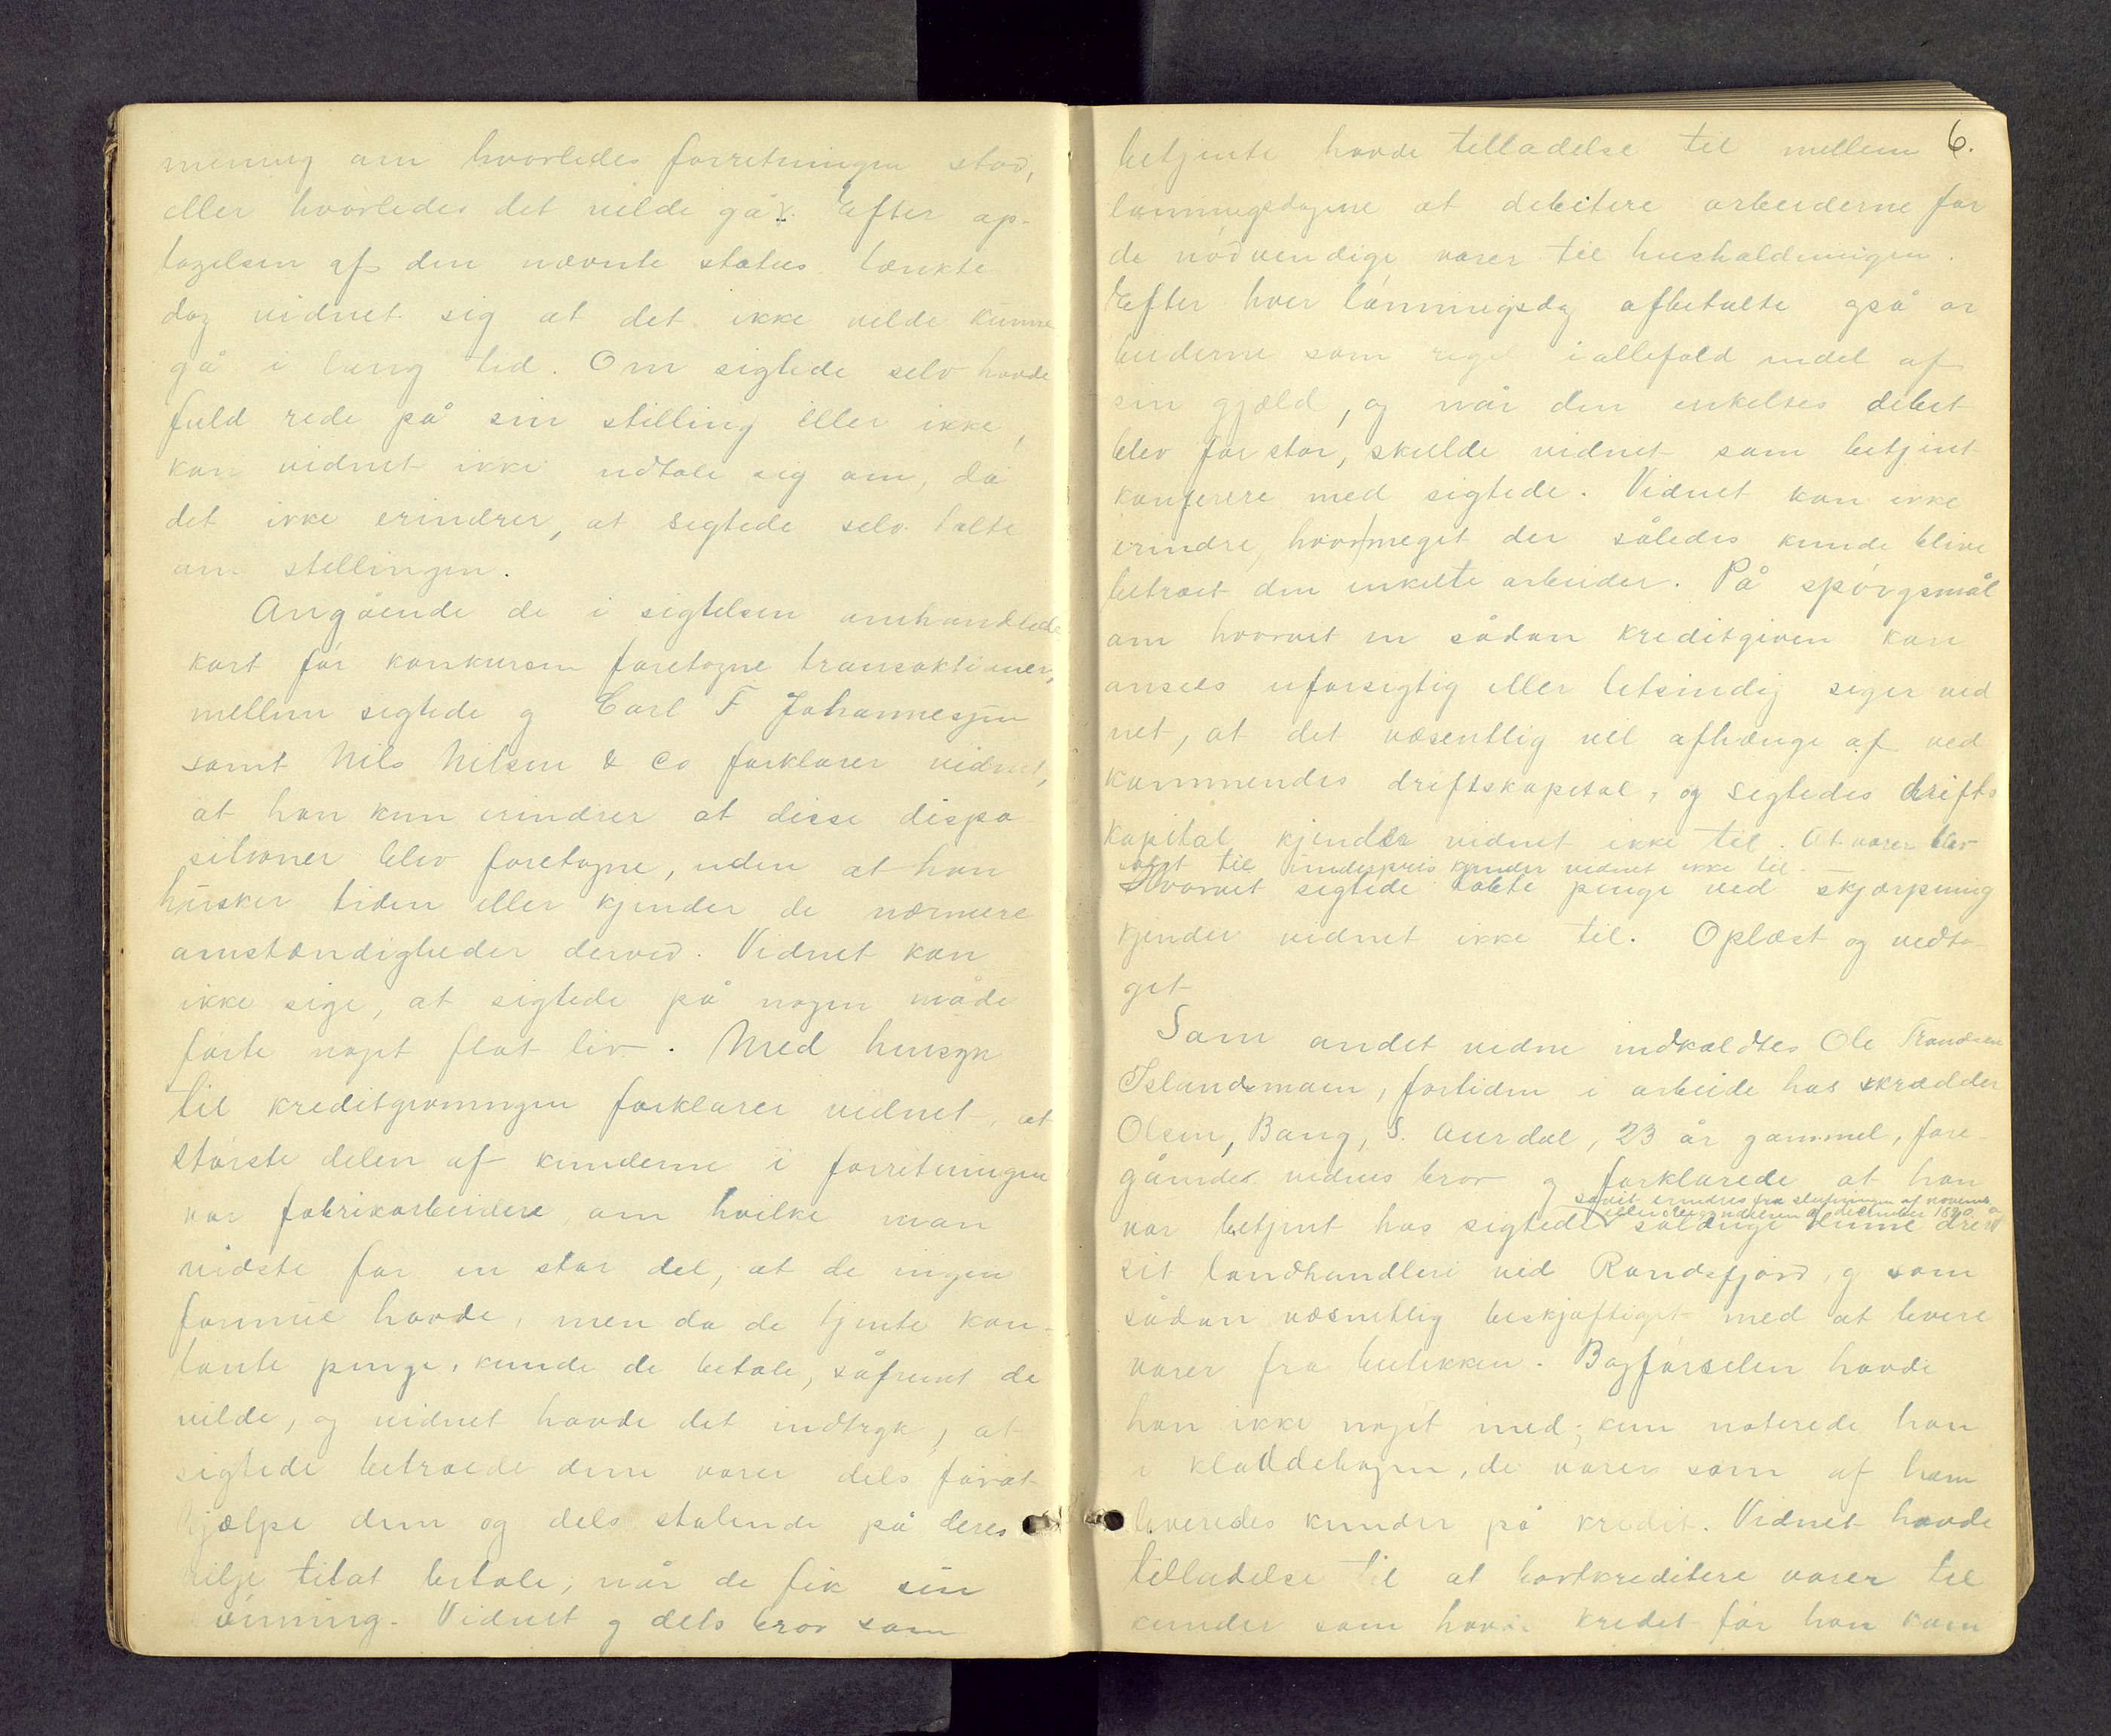 mening om hvorledes forretningen stod,
eller hvorledes det vilde gå. Efter op-
tagelsen af den nævnte status tænkte
dog vidnet sig at det ikke vilde kunne
gå i lang tid. Om sigtede selv havde
fuld rede på sin stilling eller ikke,
kan vidnet ikke udtale sig om, da
det ikke erindrer, at sigtede selv talte
om stillingen.
Angående de i sigtelsen omhandlede
kort før konkursen foretagne transaktioner,
mellem sigtede og Carl F Johannesen
samt Nils Nilsen & Co forklarer vidnet,
at han kun erindrer at disse dispo
sitioner blev foretagne, uden at han
husker tiden eller kjender de nærmere
omstændigheder derved. Vidnet kan
ikke sige, at sigtede på nogen måde
førte noget flot liv. Med hensyn
til kreditgivningen forklarer vidnet, at
største delen af kunderne i forretningen
var fabrikarbeidere, om hvilke man
vidste for en stor del, at de ingen
formue havde, men da de tjente kon-
tante penge, kunde de betale, såfremt de
vilde, og vidnet havde det indtryk, at
sigtede betroede dem varer dels forat
hjælpe dem og dels stolende på deres
vilje tilat betale, når de fik sin
lønning. Vidnet og dets bror som
6.
betjente havde tilladelse til mellem
lønningsdagene at debitere arbeiderne for
de nødvendige varer til husholdningen.
Efter hver lønningsdag afbetalte også ar
beiderne som regel iallefald endel af
sin gjæld, og når den enkeltes debet
blev for stor, skulde vidnet som betjent
konferere med sigtede. Vidnet kan ikke
erindre, hvormeget der således kunde blive
betroet den enkelte arbeider. På spørgsmål
om hvorvet en sådan kreditgiven kan
ansees uforsigtig eller letsindig siger vid
net, at det væsentlig vil afhænge af ved
kommendes driftskapital, og sigtedes drifts
kapital kjender vidnet ikke til. At varer blev
solgt til underpris kjender vidnet ikke til.
Hvorvet sigtede tabte penge ved skjærpning
kjender vidnet ikke til. Oplæst og vedta-
get
Som andet vidne indkaldtes Ole Trondsen
Islandsmoen, fortiden i arbeide hos skrædder
Olsen, Bang, S. Aurdal, 23 år gammel, fore-
gåendes vidnes bror og forklarede at han
såvit erindres fra slutningen af novemb.
eller begyndelsen af december 1890
var betjent hos sigtede sålænge denne drev
sit landhandleri ved Randsfjord, og som
sådan væsentlig beskjæftiget med at levere
varer fra butikken. Bogførselen havde
han ikke noget med; kun noterede han
i kladdebogen, de varer som af ham
leveredes kunder på kredit. Vidnet havde
tilladelse til at bortkreditere varer til
kunder som havde kredit før han kom